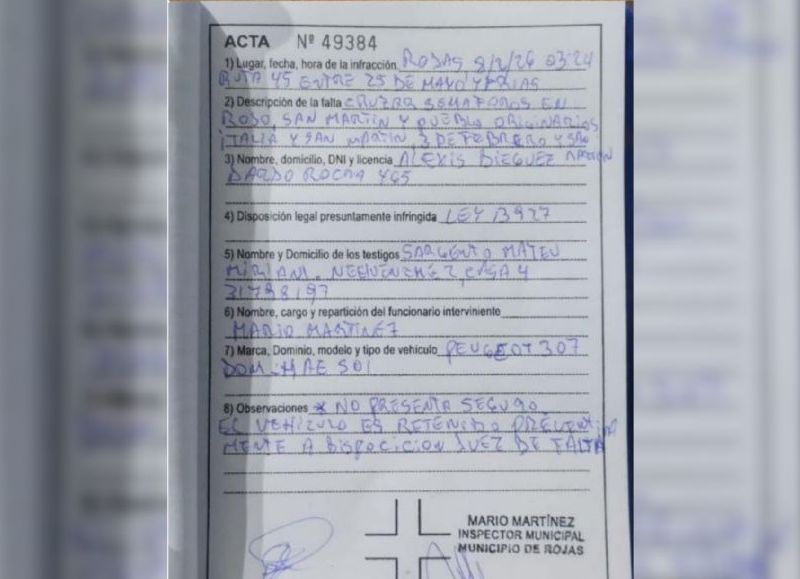 ACTA Nº 49384
1) Lugar, fecha, hora de la infracción ROJAS 8/2/26 03:24
RUTA 45 ENTRE 25 DE MAYO Y FRIAS
2) Descripción de la falta CRUZAR SEMAFOROS EN
ROJO, SAN MARTIN Y PUEBLO ORIGINARIOS
ITALIA Y SAN MARTIN, 3 DE FEBRERO Y SAN
3) Nombre, domicilio, DNI y licencia ALEXIS DIEGUEZ
DARDO ROCHA 465
4) Disposición legal presuntamente infringida LEY 13927
5) Nombre y Domicilio de los testigos SARGENTO MATEU
MIRIAM. CASA 4
31798197
6) Nombre, cargo y repartición del funcionario interviniente
MARIO MARTINEZ
7) Marca, Dominio, modelo y tipo de vehículo PEUGEOT 307
DOM-HAE 501
8) Observaciones * NO PRESENTA SEGURO
EL VEHICULO ES RETENIDO PREVENTIVA
MENTE A DISPOCICION JUEZ DE FALTA
MARIO MARTÍNEZ
INSPECTOR MUNICIPAL
MUNICIPIO DE ROJAS